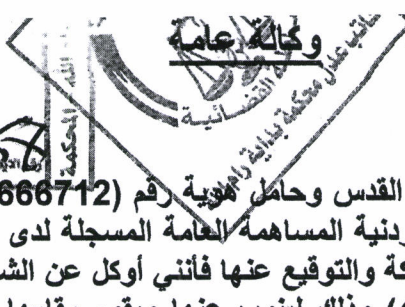 وكالة عامة
القضائية
كاتب عدل محكمة بداية رام
القدس وحامل هوية رقم (666712
ردنية المساهمة العامة المسجلة لدى
كة والتوقيع عنها فأنني أوكل عن الش